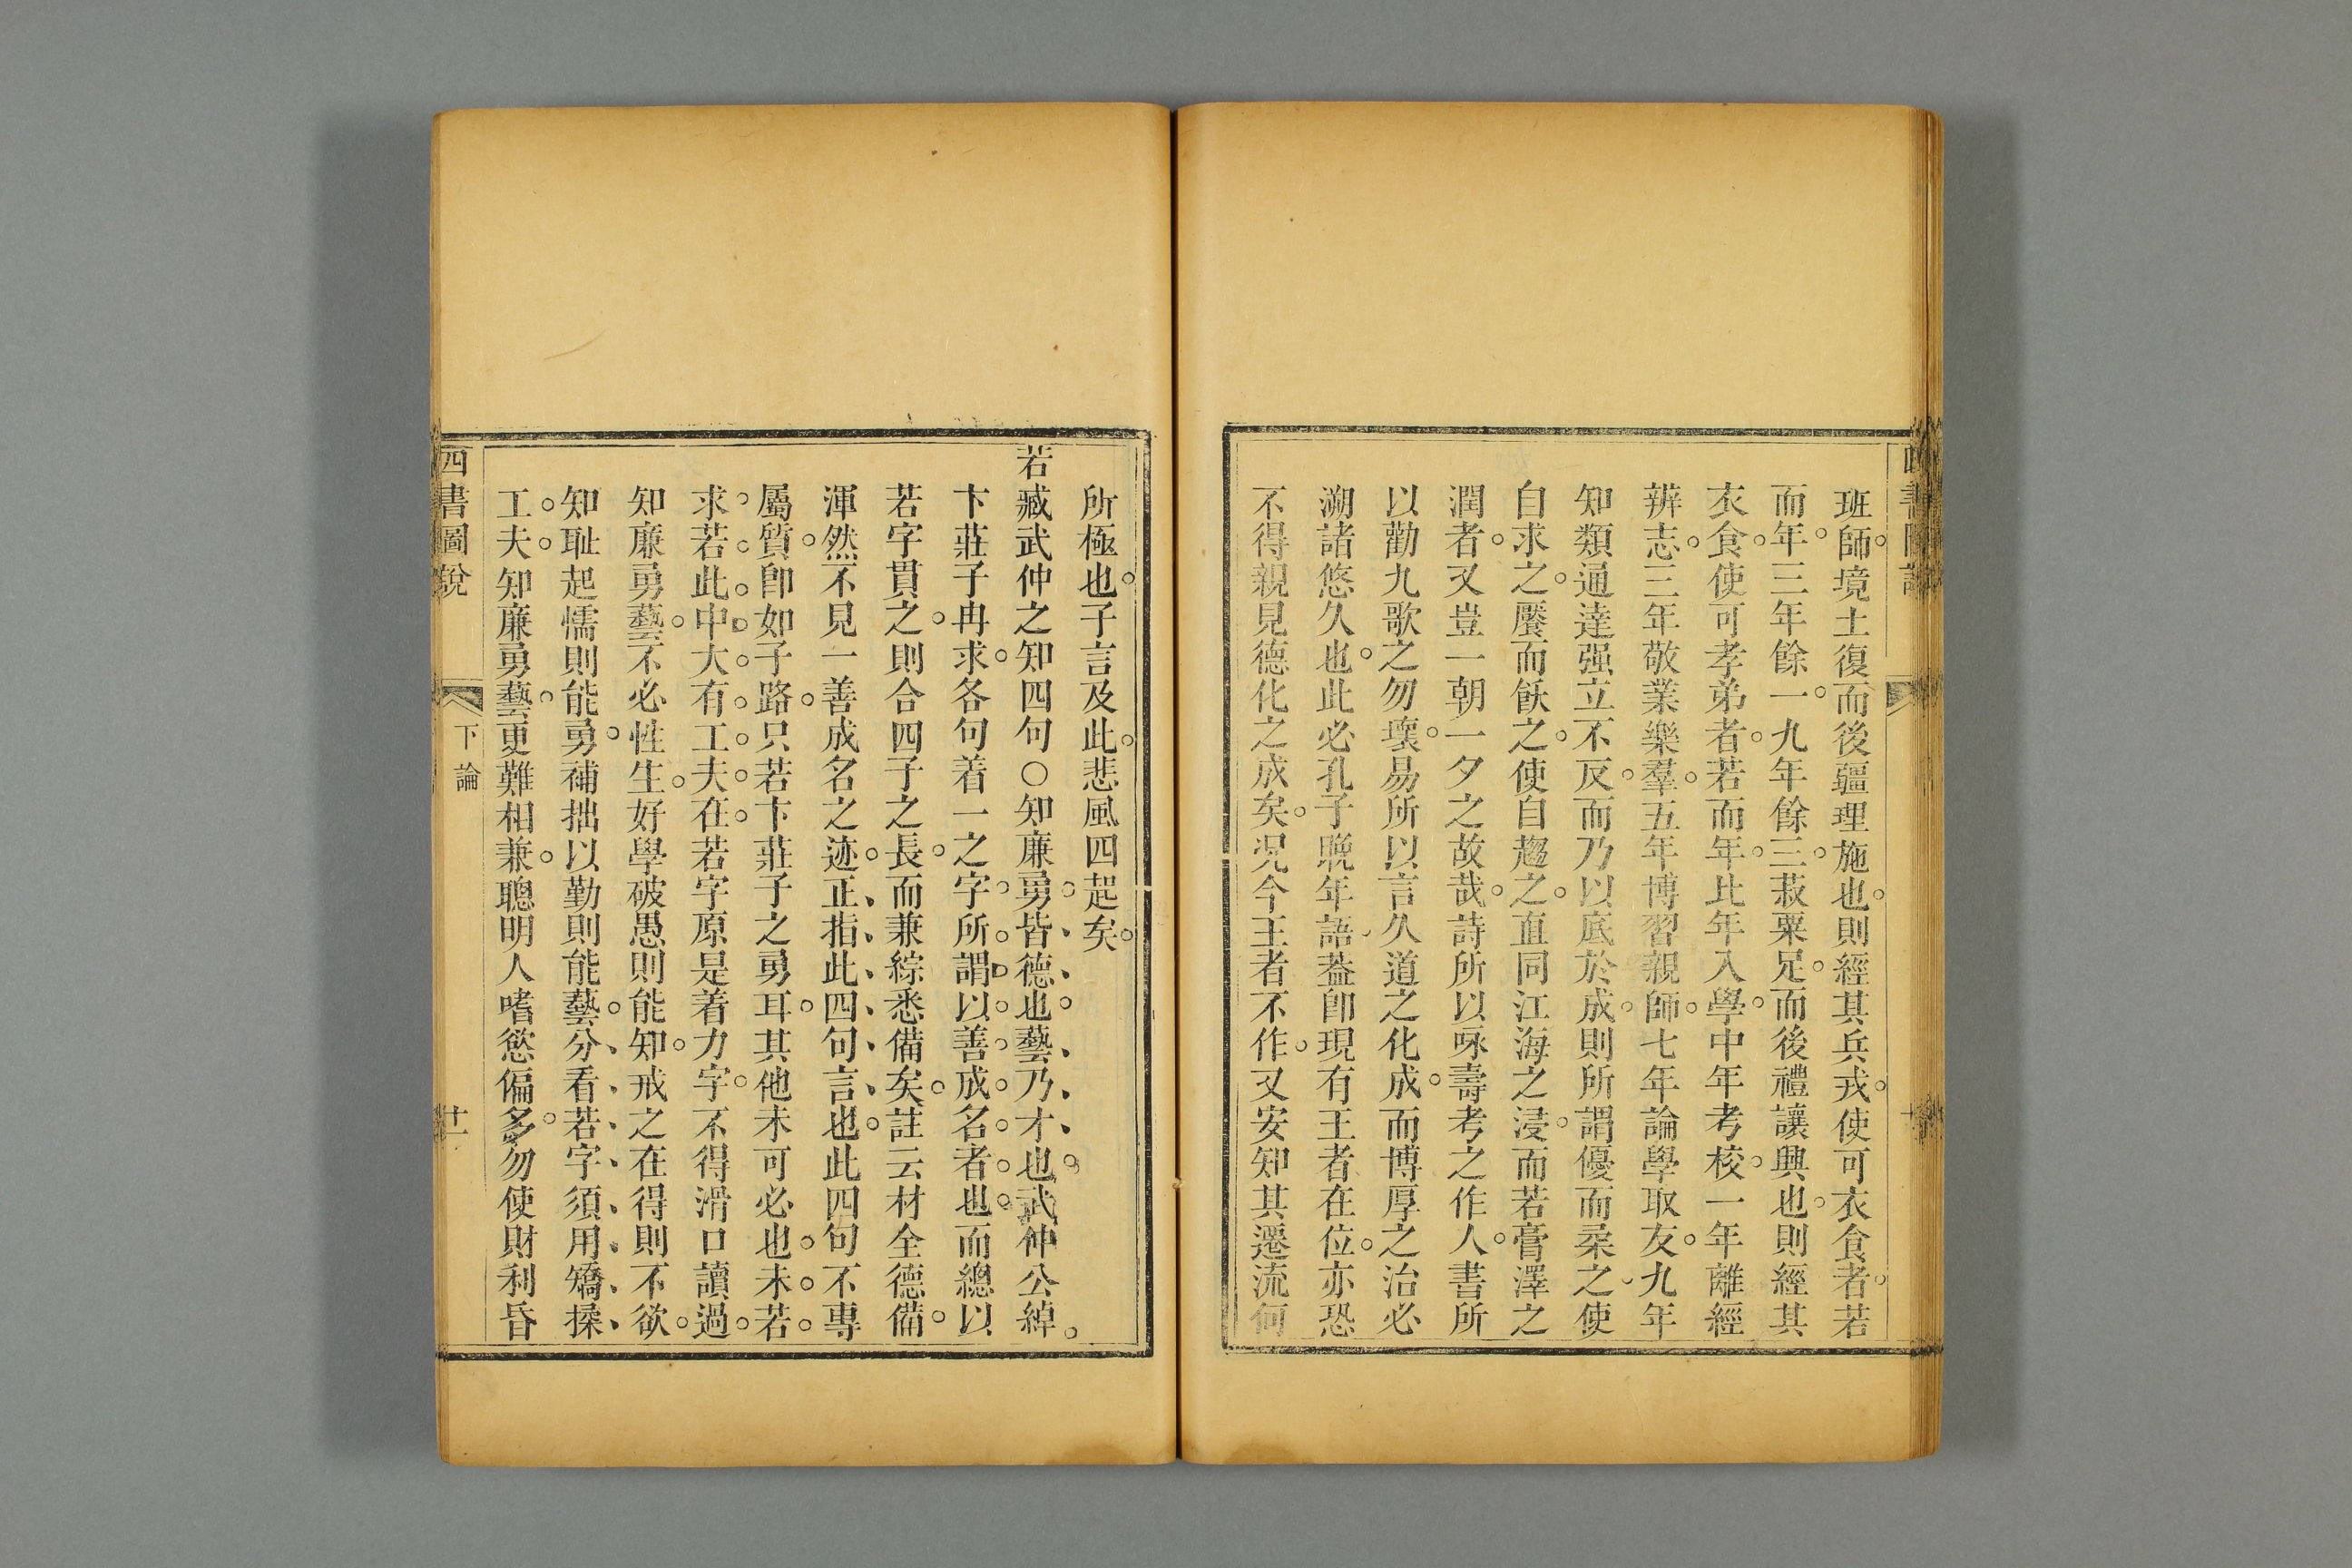 班師境土復而後疆理施也則經其兵戎使可衣食者若
而年三年餘一九年餘三菽粟足而後禮讓興也則經其
衣食使可孝弟者若而年比年入學中年考校一年離經
辨志三年敬業樂羣五年博習親師七年論學取友九年
知類通達强立不反而乃以底於成則所謂優而柔之使
自求之饜而飫之使自趨之直同江海之浸而若膏澤之
潤者又豈一朝一夕之故哉詩所以咏壽考之作人書所
以勸九歌之勿壞易所以言久道之化成而博厚之治必
溯諸悠久也此必孔子晚年語葢卽現有王者在位亦恐
不得親見德化之成矣况今王者不作又安知其遷流何
所極也子言及此悲風四起矣
若臧武仲之知四句○知廉勇皆德也藝乃才也武仲公綽
卞莊子冉求各句着一之字所謂以善成名者也而總以
若字貫之則合四子之長而兼綜悉備矣註云材全德備
渾然不見一善成名之迹正指此四句言也此四句不專
屬質卽如子路只若卞莊子之勇耳其他未可必也未若
求若此中大有工夫在若字原是着力字不得滑口讀過
知廉勇藝不必性生好學破愚則能知戒之在得則不欲
知耻起懦則能勇補拙以勤則能藝分看若字須用矯揉
工夫知廉勇藝更難相兼聰明人嗜慾偏多勿使財利昏
四書圖說 下論 廿一